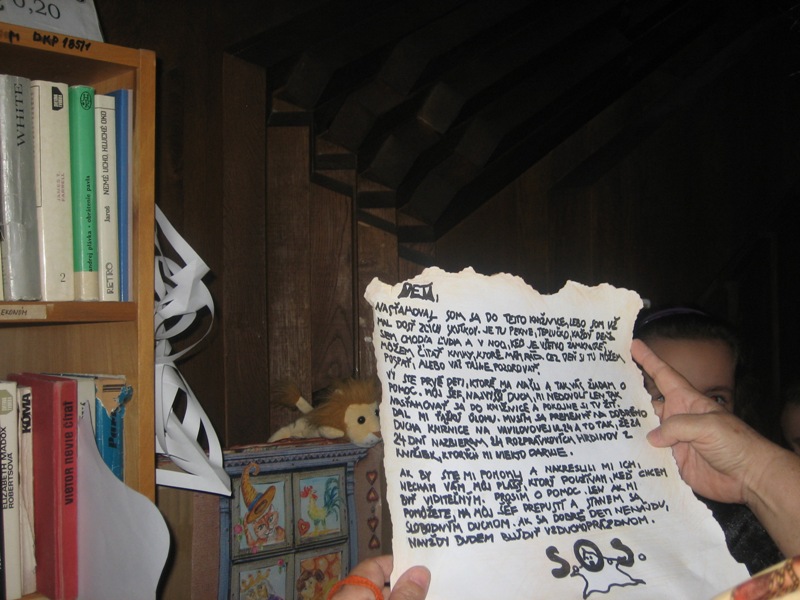 0,20
M DKP 18571
WHITE
JAMES T. FARRELL
2
andrej plávka • obrátenie pavla
Jaroš NEMÉ UCHO, HLUCHÉ OKO
RETRO
EKONÓM
ELIZABETH MADOX ROBERTSOVÁ
KOMA
VIETOR NEVIE ČÍTAŤ
DETI,
NASŤAHOVAL SOM SA DO TEJTO KNIŽNICE, LEBO SOM UŽ
MAL DOSŤ ZLÝCH SKUTKOV. JE TU PEKNE, TEPLUČKO, KAŽDÝ DEŇ
SEM CHODIA ĽUDIA A V NOCI, KEĎ JE VŠETKO ZAMKNUTÉ,
MÔŽEM ČÍTAŤ KNIHY, KTORÉ MÁM RÁD. CEZ DEŇ SI TU MÔŽEM
POSPAŤ, ALEBO VÁS TAJNE POZOROVAŤ.
VY STE PRVÉ DETI, KTORÉ MA NAŠLI A TAK VÁS ŽIADAM O
POMOC. MÔJ ŠÉF, NAJVYŠŠÍ DUCH, MI NEDOVOLIL LEN TAK
NASŤAHOVAŤ SA DO KNIŽNICE A POKOJNE SI TU ŽIŤ.
DAL MI ŤAŽKÚ ÚLOHU. MUSÍM SA PREMENIŤ NA DOBRÉHO
DUCHA KNIŽNICE NA VAVILOVOVEJ UL. 24 A TO TAK, ŽE ZA
24 DNÍ NAZBIERAM 24 ROZPRÁVKOVÝCH HRDINOV Z
KNIŽIEK, KTORÝCH MI NIEKTO DARUJE.
AK BY STE MI POMOHLI A NAKRESLILI MI ICH,
NECHÁM VÁM MÔJ PLÁŠŤ, KTORÝ POUŽÍVAM, KEĎ CHCEM
BYŤ VIDITEĽNÝM. PROSÍM O POMOC. LEN AK MI
POMÔŽETE, MA MÔJ ŠÉF PREPUSTÍ A STANEM SA
SLOBODNÝM DUCHOM. AK SA DOBRÉ DETI NENÁJDU,
NAVŽDY BUDEM BLÚDIŤ VZDUCHOPRÁZDNOM.
S.O.S.